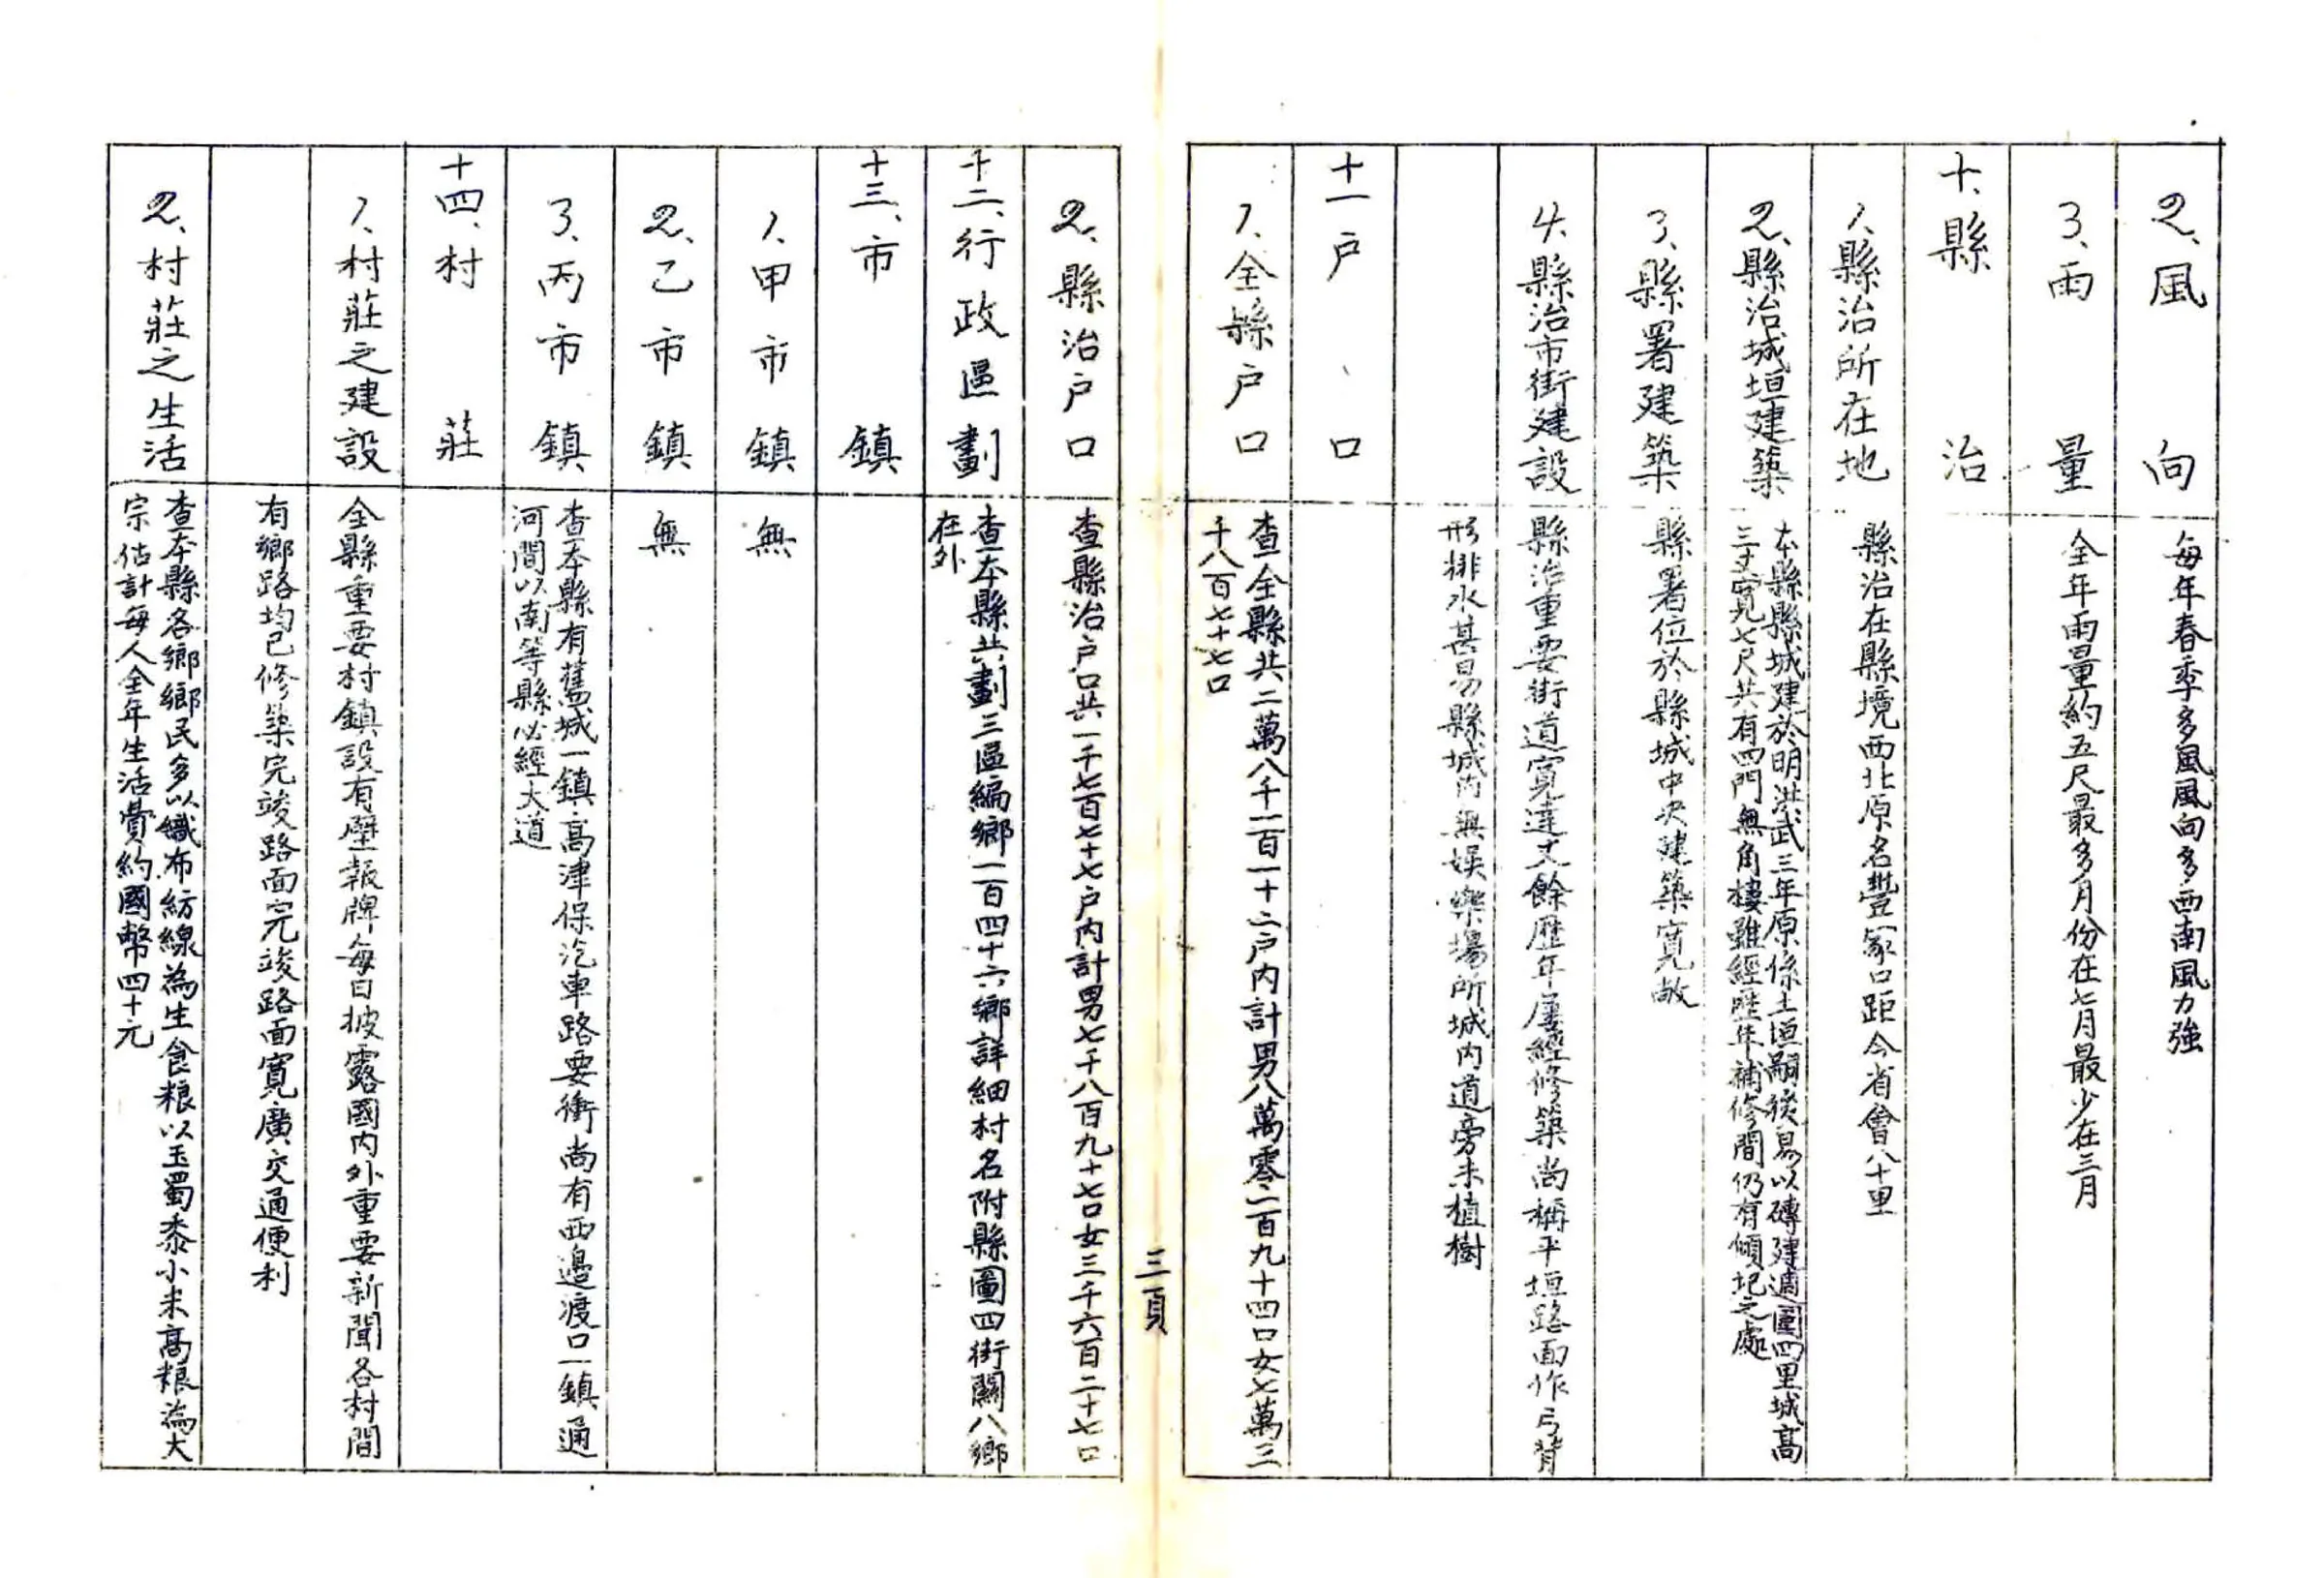 2、風向
每年春季多風風向多西南風力強
3、雨量
全年雨量約五尺最多月份在七月最少在三月
十、縣治
1、縣治所在地
縣治在縣境西北原名豐家口距今省會八十里
2、縣治城垣建築
本縣縣城建於明洪武三年原係土垣嗣後易以磚建週圍四里城高
三丈寬七尺共有四門無角樓雖經歷年補修間仍有傾圮之處
3、縣署建築
縣署位於縣城中央建築寬敞
4、縣治市街建設
縣治重要街道寬達丈餘歷年屢經修築尚稱平垣路面作弓背
形排水甚易縣城內無娛樂場所城內道旁未植樹
十一戶口
1、全縣戶口
查全縣共二萬八千一百一十二戶內計男八萬零一百九十四口女七萬三
千八百七十七口
2、縣治戶口
查縣治戶口共一千七百七十七戶內計男七千八百九十七口女三千六百二十七口
十二、行政區劃
查本縣共劃三區編鄉一百四十六鄉詳細村名附縣圖四街關八鄉
在外
十三、市鎮
1、甲市鎮
無
2、乙市鎮
無
3、丙市鎮
查本縣有舊城一鎮高津保汽車路要衝尚有西邊渡口一鎮通
河間以南等縣必經大道
十四、村莊
1、村莊之建設
全縣重要村鎮設有壁報牌每日披露國內外重要新聞各村間
有鄉路均已修築完竣路面完竣路面寬廣交通便利
2、村莊之生活
查本縣各鄉鄉民多以織布紡線為生食粮以玉蜀黍小米高粮為大
宗估計每人全年生活費約國幣四十元
三頁